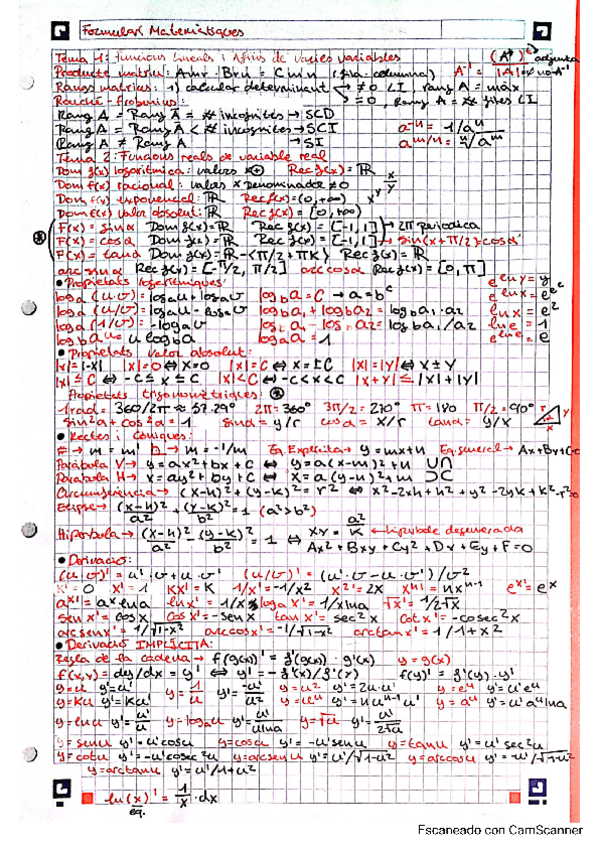 Formulari Matemàtiques
Tema 1: Funcions lineals i Afins de varies variables
Producte matriu: Amr · Brn = Cmn (fila · columna) A⁻¹ = (A*)ᵗ adjunta / |A| ≠ 0
Rangs matrius: 1) calcular determinant → ≠ 0 LI, rang A = màx
= 0, Rang A = # files LI
Rouché-Frobenius:
Rang A = Rang A̅ = # incògnites → SCD
Rang A = Rang A̅ < # incògnites → SCI a⁻ⁿ = 1/aⁿ
Rang A ≠ Rang A̅ → SI
Tema 2: Funcions reals de variable real
Dom f(x) logarítmica: valors x ⊕ Rec f(x) = ℝ
Dom f(x) racional: valors x Denominador ≠ 0
Dom f(x) exponencial: ℝ Rec f(x) = (0, +∞)
Dom f(x) valor absolut: ℝ Rec f(x) = [0, +∞)
F(x) = sin α Dom f(x) = ℝ Rec f(x) = [-1,1] → 2π periodica
F(x) = cos α Dom f(x) = ℝ Rec f(x) = [-1,1] → sin(x+π/2) = cos α
F(x) = tan α Dom f(x) = ℝ - (π/2 + πK} Rec f(x) = ℝ
arc sin α Rec f(x) = [-π/2, π/2] arc cos α Rec f(x) = [0, π]
• Propietats logarítmiques: e^ln y = y
loga (u·v) = loga u + loga v log b a = C → a = b^c
loga (u/v) = loga u - loga v log b a1 + log b a2 = log b a1 · a2 ln x = e²
loga (1/v) = -loga v log b a1 - log b a2 = log b a1 / a2 ln e = 1
log b aᵘ = u log b a log a a = 1
• Propietats valor absolut:
|x| = |-x| |x| = 0 ⇔ x = 0 |x| = C ⇔ x = ±C |x| = |y| ⇔ x = ± y
|x| ≤ C ⇔ -C ≤ x ≤ C |x| < C ⇔ -C < x < C |x+y| ≤ |x| + |y|
Propietats trigonomètriques: ⊛
1 rad = 360/2π ≈ 57.29° 2π = 360° 3π/2 = 270° π = 180 π/2 = 90°
sin²α + cos²α = 1 sin α = y/r cos α = x/r tan α = y/x
• Rectes i còniques:
→ m = m' → m = -1/m Eq. Explícita → y = mx + n Eq. general → Ax+By+C=0
Paràbola V → y = ax² + bx + c ⇔ y = a(x-m)² + n ∪∩
Paràbola H → x = ay² + by + c ⇔ x = a(y-n)² + m ⊃⊂
Circumferència → (x-h)² + (y-k)² = r² ⇔ x² - 2xh + h² + y² - 2yk + k² - r² = 0
Eclipse → (x-h)²/a² + (y-k)²/b² = 1 (a² > b²)
Hipèrbola → (x-h)²/a² - (y-k)²/b² = 1 ⇔ xy = a²/K ← hipèrbole degenerada
Ax² + Bxy + Cy² + Dx + Ey + F = 0
• Derivació:
(u·v)' = u'·v + u·v' (u/v)' = (u'·v - u·v')/v²
K' = 0 x' = 1 Kx' = K 1/x' = -1/x² x²' = 2x xⁿ' = nxⁿ⁻¹ eˣ' = eˣ
aˣ' = aˣ ln a ln x' = 1/x loga x' = 1/x ln a √x' = 1/2√x
sen x' = cos x cos x' = -sen x tan x' = sec² x cot x' = -cosec² x
arc sen x' = 1/√1-x² arc cos x' = -1/√1-x² arc tan x' = 1/1+x²
• Derivació IMPLÍCITA:
Regla de la cadena → f(g(x))' = f'(g(x)) · g'(x) y = g(x)
f(x,y) = dy/dx = y' ⇔ y' = -f'(x)/f'(y) f(y)' = f'(y) · y'
y = u y' = u' y = 1/u y' = -u'/u² y = u² y' = 2u·u' y = eᵘ y' = u'eᵘ
y = Ku y' = Ku' y = uⁿ y' = nuⁿ⁻¹u' y = aᵘ y' = u'aᵘ ln a
y = ln u y' = u'/u y = loga u y' = u'/u ln a y = √u y' = u'/2√u
y = sen u y' = u' cos u y = cos u y' = -u' sen u y = tan u y' = u' sec² u
y = cot u y' = -u' cosec² u y = arc sen u y' = u'/√1-u² y = arc cos u y' = -u'/√1-u²
y = arc tan u y' = u'/1+u²
ln(x)' = 1/x · dx
eq.
Escaneado con CamScanner